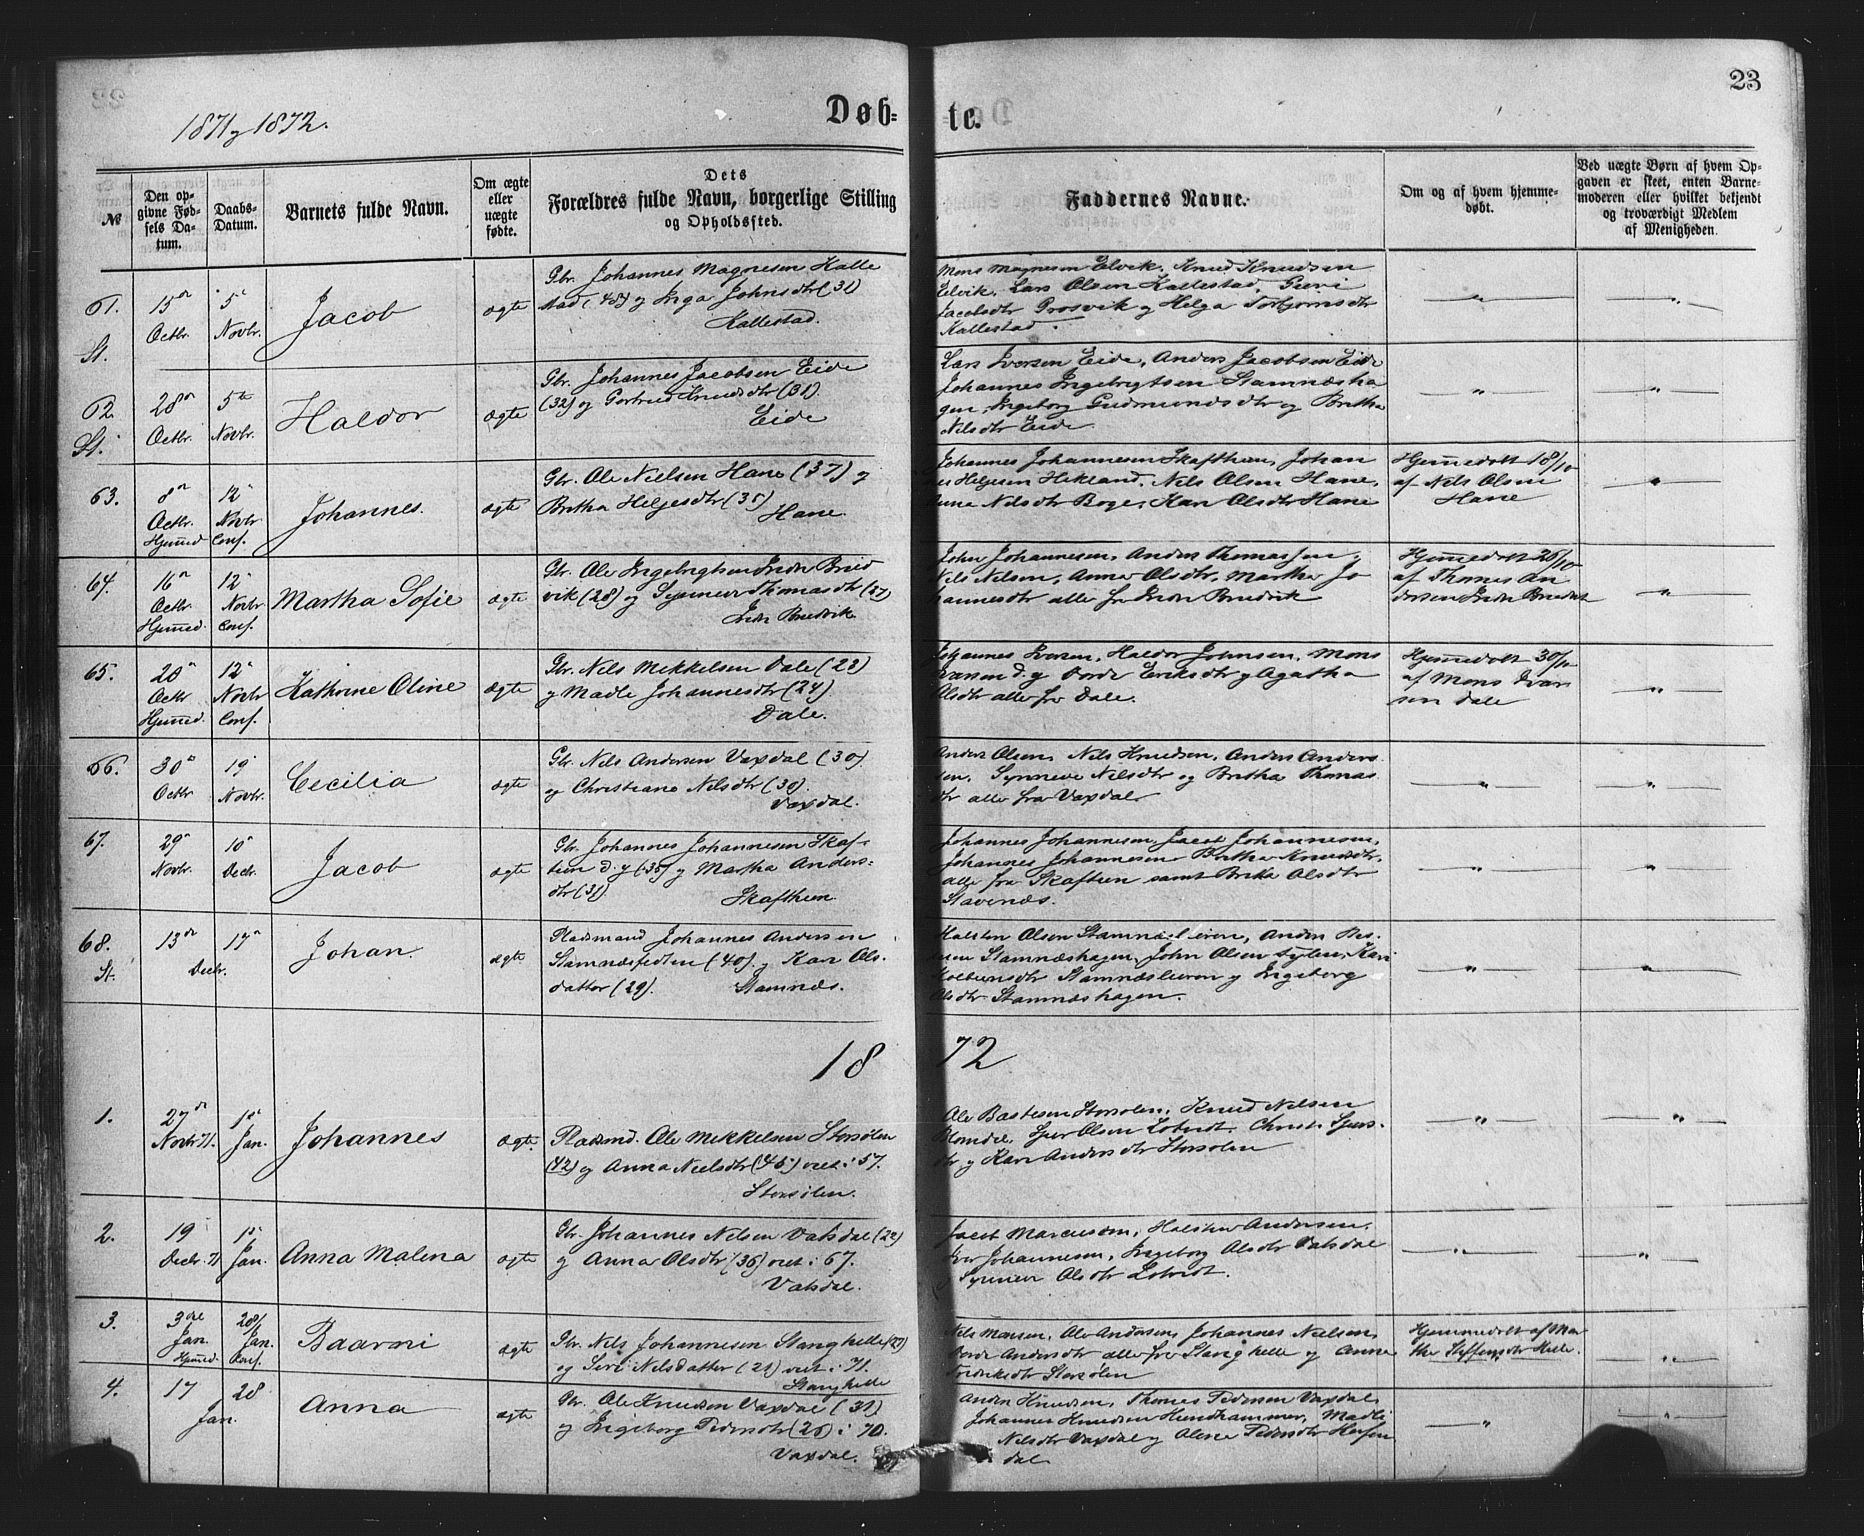 23
1871 og 1872.
Døb= te.
№
Den op-
givne Fød-
sels Da-
tum.
Daabs-
Datum.
Barnets fulde Navn.
Om ægte
eller
uægte
fødte.
Dets
Forældres fulde Navn, borgerlige Stilling
og Opholdssted.
Faddernes Navne.
Om og af hvem hjemme-
døbt.
Ved uægte Børn af hvem Op-
gaven er skeet, enten Barne-
moderen eller hvilket bekjendt
og troværdigt Medlem
af Menigheden.
61.
St.
15de
Octbr.
5te
Novbr.
Jacob
ægte
Gbr. Johannes Magnesen Kalle
stad (48) og Inga Johnsdtr (31)
Kallestad.
Mons Magnesen Elvik, Knud Knudsen
Elvik, Lars Olsen Kallestad, Guri
Jacobsdtr Drosvik og Helga Torbjørnsdtr
Kallestad.
62.
St.
28de
Octbr.
5te
Novbr.
Haldor
ægte
Gbr. Johannes Jacobsen Eide
(32) og Gertrud Knudsdtr (31)
Eide
Lars Iversen Eide, Anders Jacobsen Eide
Johannes Ingebrigtsen Stamnæsha
gen, Ingeborg Gudmundsdtr og Britha
Nilsdtr Eide
63.
8de
Octbr.
Hjemmed
12te
Novbr
Conf.
Johannes.
ægte
Gbr. Ole Nielsen Hane (37) og
Britha Helgesdtr (35)
Hane
Johannes Johannesen Skafthun, Johan
nes Helgesen Hekland, Nils Olsen Hane,
Anna Nilsdtr Boge, Kari Olsdtr Hane
Hjemmedøbt 18/10
af Nils Olsen
Hane
64.
16de
Octbr
Hjemmed.
12te
Novbr
Conf.
Martha Sofie
ægte
Gbr. Ole Ingebrigtsen Indre Bried
vik (28) og Synneve Thomasdtr
Indre Bredvik
John Johannesen, Anders Thomassen,
Nils Nilsen, Anna Olsdtr, Martha Jo
hannesdtr alle fra Indre Bredvik
Hjemmedøbt 26/10
af Thomas An
dersen Indre Bredvik
65.
20de
Octbr
Hjemmed
12te
Novbr
Conf.
Kathrine Oline
ægte
Gbr. Nils Mikkelsen Dale (23)
og Madle Johannesdtr (24)
Dale.
Johannes Iversen, Haldor Johnsen, Mons
Ivarsen d.y. Dorde Eriksdtr og Agatha
Olsdtr alle fra Dale.
Hjemmedøbt 30/10
af Mons Ivar
sen Dale
66.
30te
Octbr
19de
Novbr.
Cecilia
ægte
Gbr. Nils Andersen Vaxdal (30)
og Christiane Nilsdtr (30)
Vaxdal.
Anders Olsen, Nils Knudsen, Anders Anders
sen, Synneve Nilsdtr og Britha Thomas
dtr alle fra Vaxdal.
67.
29de
Novbr.
10de
Decbr.
Jacob
ægte
Gbr. Johannes Johannesen Skaf-
teun d.y (35) og Martha Anders-
dtr (31).
Skafthun
Johannes Johannesen, Jacob Johannesen,
Johannes Johannesen Britha Knudsdtr,
alle fra Skafteun samt Brita Olsdtr
Stavenæs.
68.
St.
13de
17de
Decbr.
Johan.
ægte.
Pladsmand Johannes Andersen
Stamnæsfedten (40) og Kari Ols-
datter (29). Stamnæs.
Halsten Olsen Stamnæsleiren, Anders
Stamnæshagen, John Olsen Kari
Stamnæsleiren og Ingeborg
Olsdtr Stamnæshagen.
1872
1.
27de
Novbr 71.
1ste
Jan.
Johannes
ægte.
Pladsmd. Ole Mikkelsen Storsølen
(42) og Anna Nielsdtr (45) viet i 57.
Storsølen.
Ole Bastesen Storsølen, Knud Nilsen
Blomdal, Sjur Olsen Christi Sjurs-
dtr og Kari Andersdtr Storsølen
2.
19
Decbr. 71
1ste
Jan.
Anna Malena
ægte
Gbr. Johannes Nilsen Vaksdal (22)
og Anna Olsdtr (36) viet i 67.
Vaksdal.
Jacob Marcussen, Halsten Andersen,
Iver Johannesen, Ingeborg Olsdtr Vaksdal
og Synneve Olsdtr
3.
3die
Jan.
Hjemmed
28/
Jan.
Conf.
Baarni
ægte
Gbr. Nils Johannesen Stanghelle (27)
og Siri Nilsdatter (21) viet i 71.
Stanghelle
Nils Monsen, Ole Andersen, Johannes Nielsen,
Dorde Andersdtr alle fra Stanghelle og Anna
Fredriksdtr Storsølen
Hjemmedøbt af Mar
tha Steffensdtr Helle.
4.
17
28
Jan.
Anna
ægte
Gbr. Ole Knudsen Vaxdal (31)
og Ingeborg Pedersdtr (26) i 70.
Vaxdal.
Anders Knudsen, Thomas Pedersen Vaxdal,
Johannes Knudsen Hundhammer, Madli
Nilsdtr Vaxdal og Olena Pedersdtr
dal